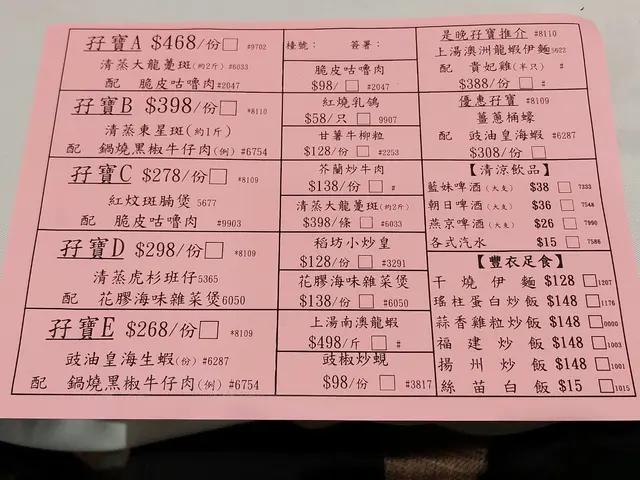 孖寶A $468/份 #9702
清蒸大龍躉斑(約2斤) #6033
配 脆皮咕嚕肉 #2047
孖寶B $398/份 *8110
清蒸東星斑(約1斤)
配 鍋燒黑椒牛仔肉(例) #6754
孖寶C $278/份 *8109
紅炆斑腩煲 5677
配 脆皮咕嚕肉 #9903
孖寶D $298/份 *8109
清蒸虎杉班仔 5365
配 花膠海味雜菜煲 6050
孖寶E $268/份 *8109
豉油皇海生蝦(份) #6287
配 鍋燒黑椒牛仔肉(例) #6754
檯號： 簽署：
脆皮咕嚕肉
$98/份 #2047
紅燒乳鴿
$58/只 9907
甘薯牛柳粒
$128/份 #2253
芥蘭炒牛肉
$138/份 #
清蒸大龍躉斑(約2斤)
$398/條 #6033
稻坊小炒皇
$128/份 #3291
花膠海味雜菜煲
$138/份 #6050
上湯南澳龍蝦
$498/斤 #
豉椒炒蜆
$98/份 #3817
是晚孖寶推介 #8110
上湯澳洲龍蝦伊麵 5622
配 貴妃雞(半只) #
$388/份 #
優惠孖寶 #8109
薑蔥桶蠔
配 豉油皇海蝦 #6287
$308/份
【清涼飲品】
藍妹啤酒(大支) $38 7333
朝日啤酒(大支) $36 7548
燕京啤酒(大支) $26 7990
各式汽水 $15 7586
【豐衣足食】
干燒伊麵 $128 1207
瑤柱蛋白炒飯 $148 1176
蒜香雞粒炒飯 $148 0000
福建炒飯 $148 1003
揚州炒飯 $148 1001
絲苗白飯 $15 1015